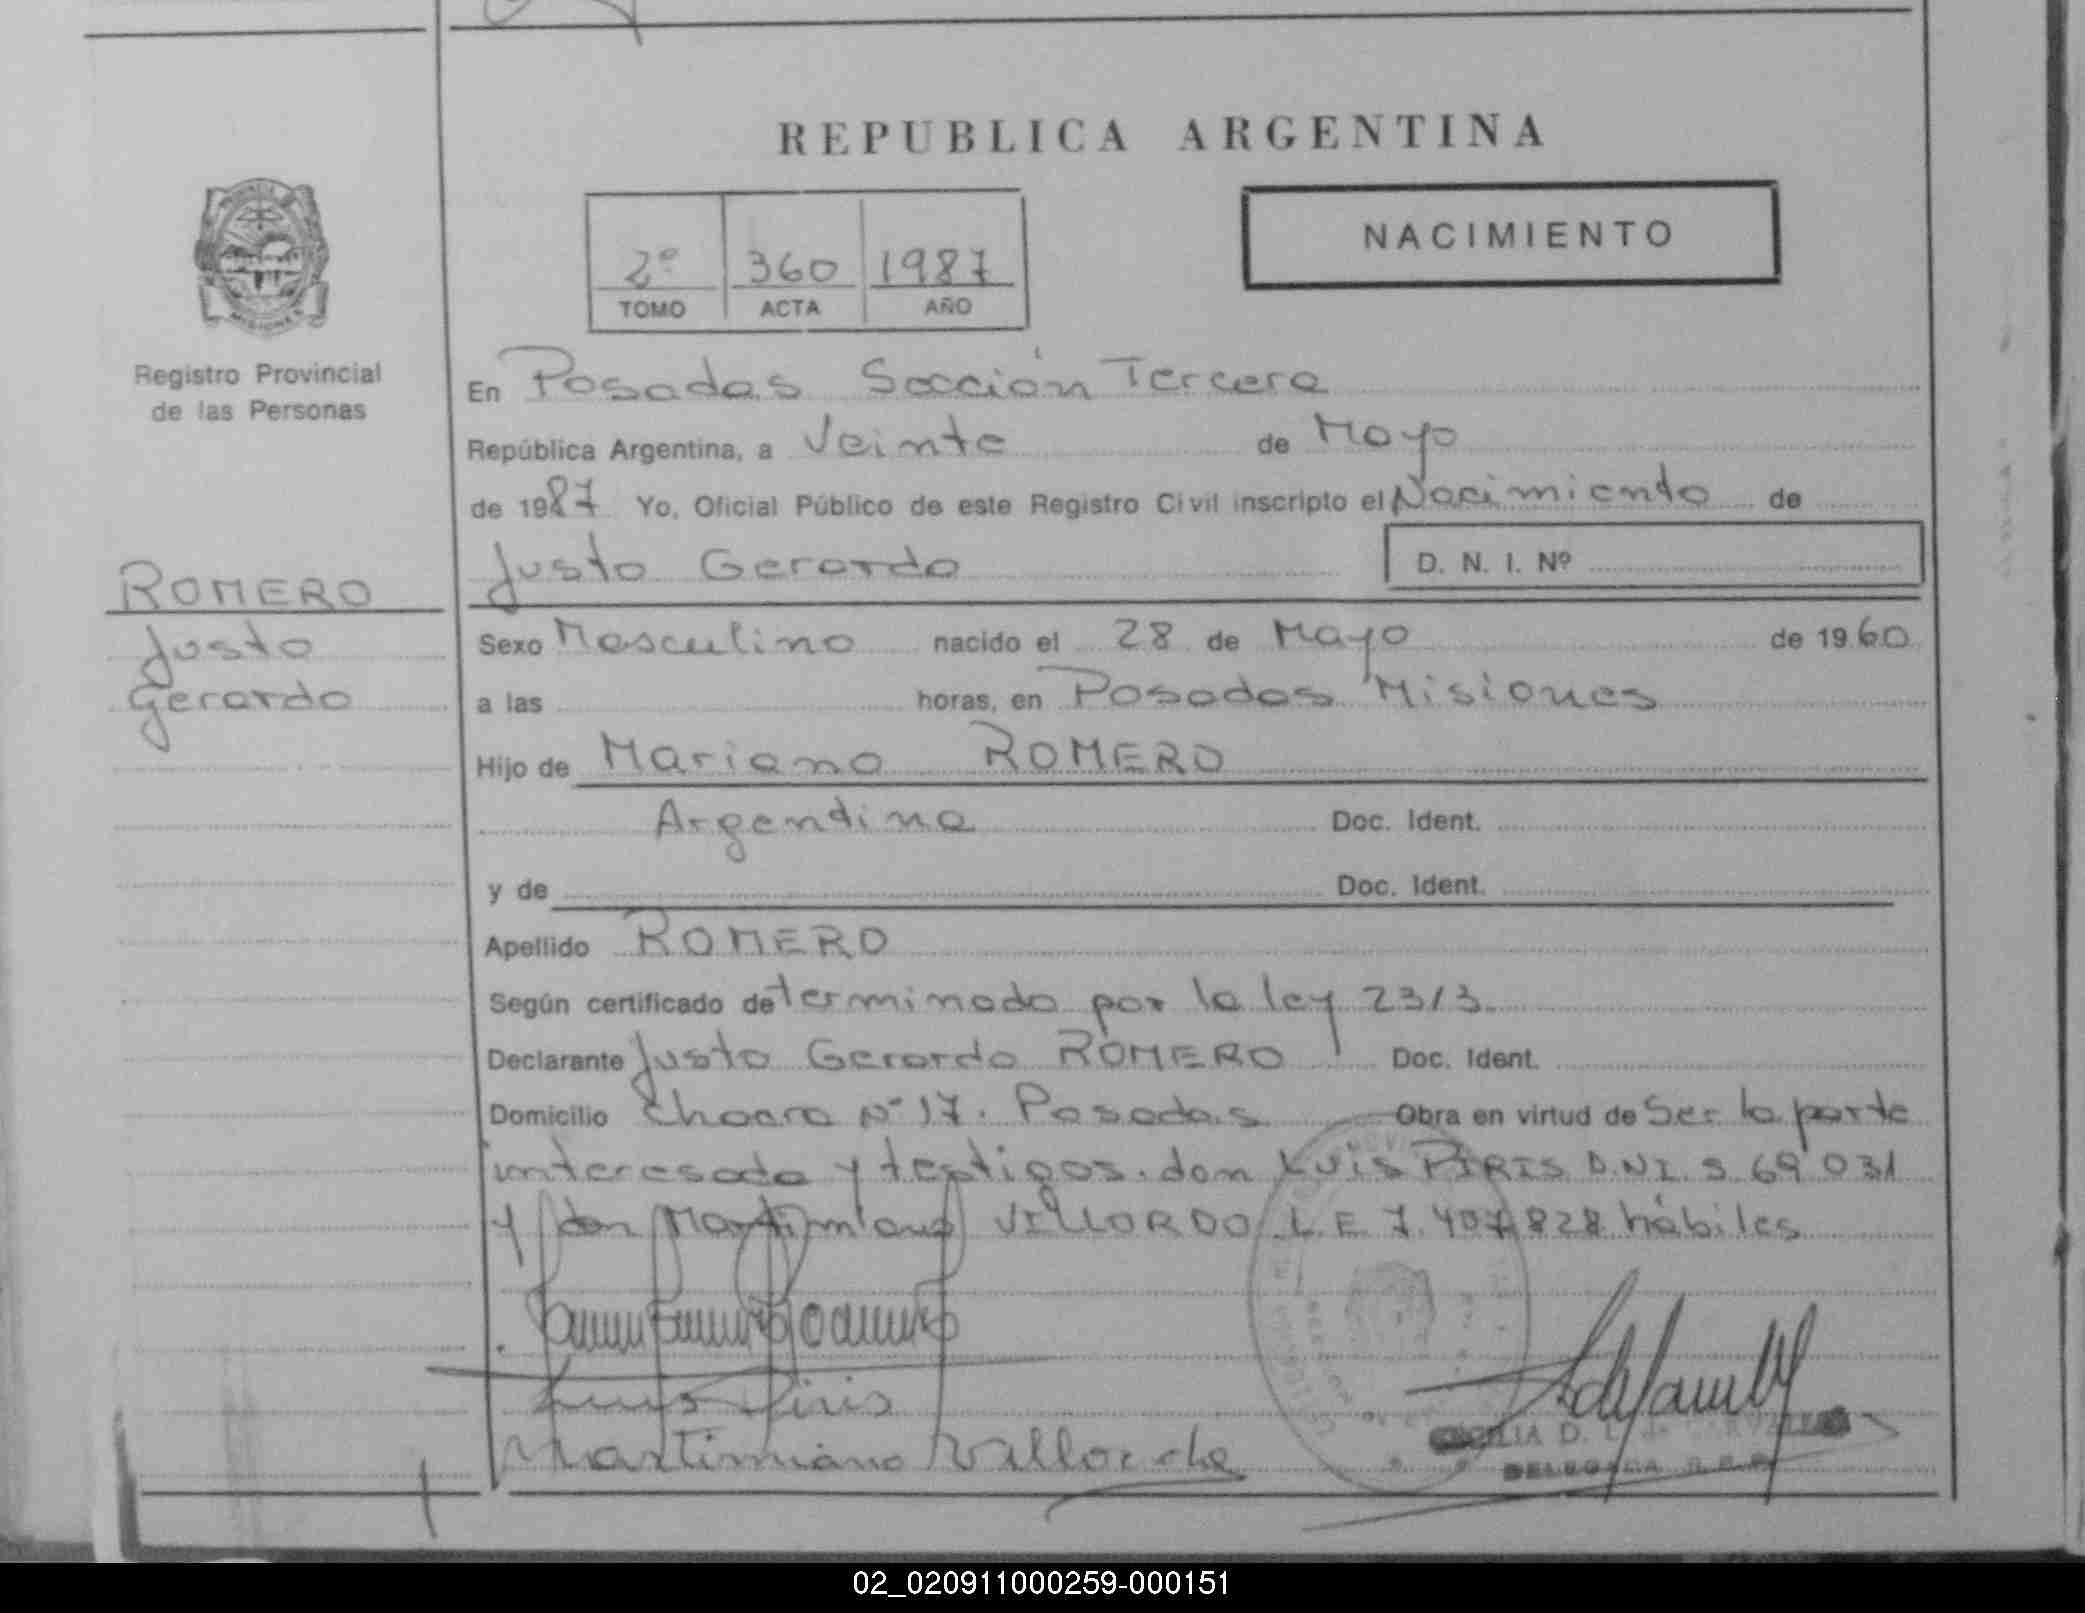 REPUBLICA ARGENTINA
NACIMIENTO
2º 360 1987
TOMO ACTA AÑO
Registro Provincial
de las Personas
En Posadas Sección Tercera
República Argentina, a Veinte de Mayo
de 1987 Yo, Oficial Público de este Registro Civil inscripto el Nacimiento de
Justo Gerardo D. N. I. Nº
ROMERO
Justo
Gerardo
Sexo Masculino nacido el 28 de Mayo de 1960
a las horas, en Posadas Misiones
Hijo de Mariano ROMERO
Argentina Doc. Ident.
y de Doc. Ident.
Apellido ROMERO
Según certificado determinado por la ley 2313.
Declarante Justo Gerardo ROMERO Doc. Ident.
Domicilio Chacra Nº 17. Posadas Obra en virtud de Ser la parte
interesada y testigos. don Luis PIRIS D.N.I. 5.69.031
y don Martimiano VILLORDO L.E 7.407.828 hábiles
Luis Piris
Martimiano Villordo
DELEGADA R.P.P.
02_020911000259-000151